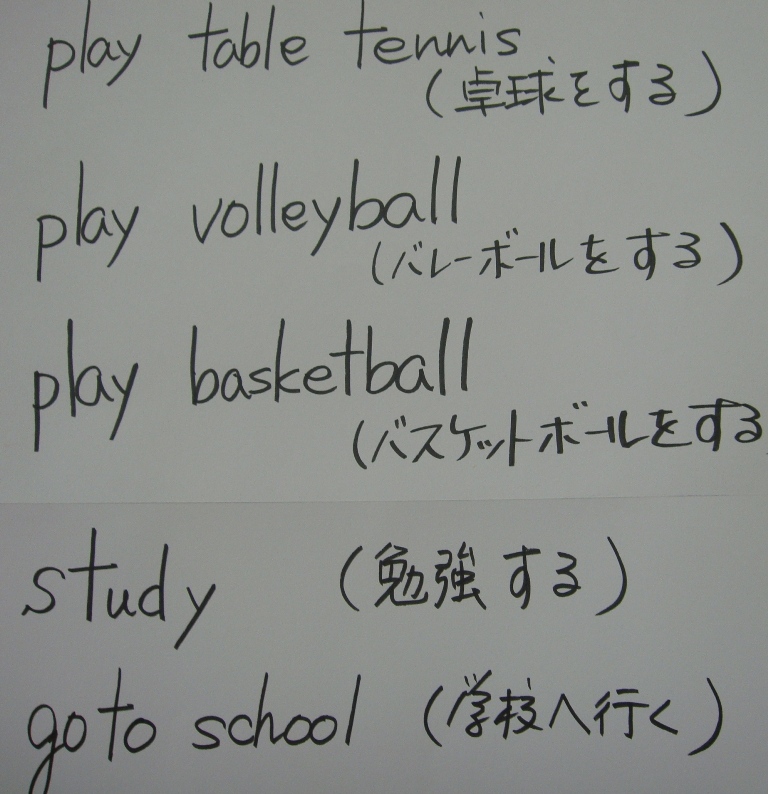 play table tennis
(卓球をする)
play volleyball
(バレーボールをする)
play basketball
(バスケットボールをする
study (勉強する)
go to school (学校へ行く)